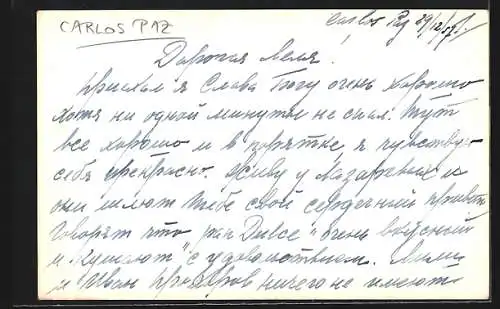 CARLOS PAZ
Carlos Paz 29/12/57
Дорогая Леля!
приехал я Слава Богу очень хорошо
хотя ни одной минуты не спал. Тут
все хорошо и в порятке я чувствую
себя прекрасно. Живу у Назаровых и
они шлют тебе свой сердечный привет
Говорят что "pan Dulce" очень вкусный
и "кушают" с удовольствием. Мили
и Иван ничего не имеют